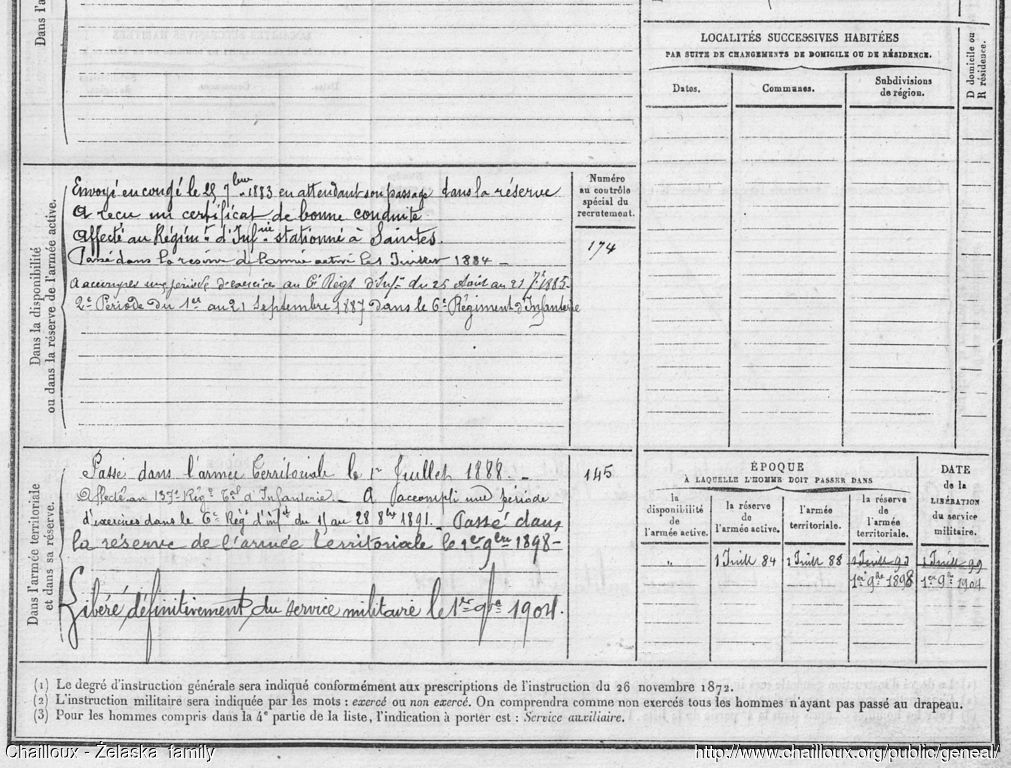 Dans l'a
LOCALITÉS SUCCESSIVES HABITÉES
PAR SUITE DE CHANGEMENTS DE DOMICILE OU DE RÉSIDENCE.
Dates.
Communes.
Subdivisions
de région.
D domicile ou
R résidence.
Dans la disponibilité
ou dans la réserve de l'armée active.
Envoyé en congé le 28 7bre 1883 en attendant son passage dans la réserve
A reçu un certificat de bonne conduite
Affecté au Régimt d'Infrie stationné à Saintes.
Passé dans la réserve de l'armée active le 1 Juillet 1884 —
A accompli une période d'exercices au 6e Régt d'Infie du 25 Août au 21 7bre 1885.
2e Période du 1er au 21 Septembre 1887 dans le 6e Régiment d'Infanterie
Numéro
au contrôle
spécial du
recrutement.
174
Dans l'armée territoriale
et dans sa réserve.
Passé dans l'armée territoriale le 1er Juillet 1888. —
Affecté au 137e Régt Tal d'Infanterie. A accompli une période
d'exercices dans le 6e Régt d'inf du 11 au 28 8bre 1891. — Passé dans
la réserve de l'armée territoriale le 1er 9bre 1898 —
Libéré définitivement du service militaire le 1er 9bre 1904.
145
ÉPOQUE
À LAQUELLE L'HOMME DOIT PASSER DANS
la
disponibilité
de
l'armée active.
la réserve
de
l'armée active.
l'armée
territoriale.
la réserve
de
l'armée
territoriale.
DATE
de la
LIBÉRATION
du service
militaire.
"
1 Juill 84
1 Juill 88
1 Juill 93
1 Juill 99
1er 9bre 1898
1er 9bre 1904
(1) Le degré d'instruction générale sera indiqué conformément aux prescriptions de l'instruction du 26 novembre 1872.
(2) L'instruction militaire sera indiquée par les mots : exercé ou non exercé. On comprendra comme non exercés tous les hommes n'ayant pas passé au drapeau.
(3) Pour les hommes compris dans la 4e partie de la liste, l'indication à porter est : Service auxiliaire.
Chailloux - Żelaska family
http://www.chailloux.org/public/geneal/